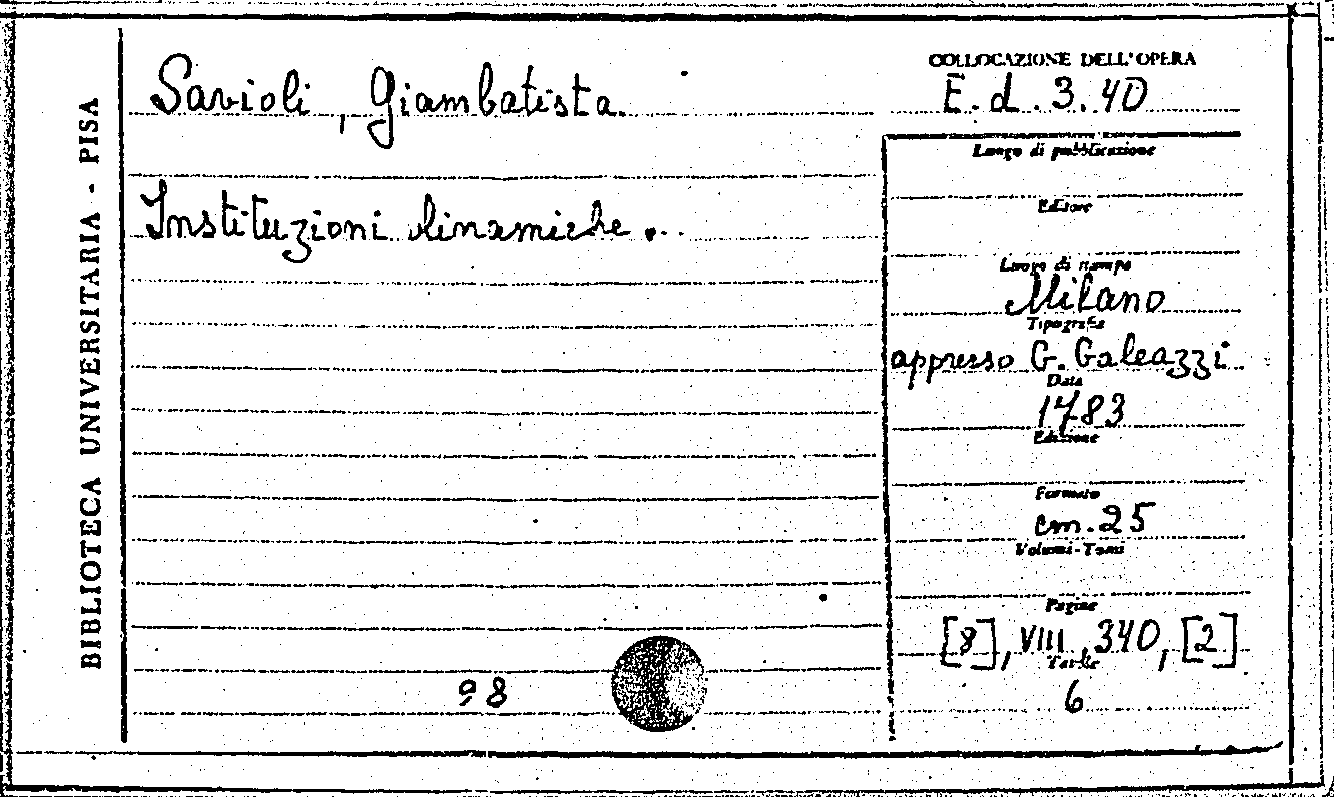 BIBLIOTECA UNIVERSITARIA - PISA
Savioli, Giambatista.
Instituzioni dinamiche.
98
COLLOCAZIONE DELL'OPERA
E.d.3.40
Luogo di pubblicazione
Editore
Luogo di stampa
Milano
Tipografia
appresso G. Galeazzi
Data
1783
Edizione
Formato
cm. 25
Volumi-Tomi
Pagine
[8], VIII, 340, [2]
Tavole
6